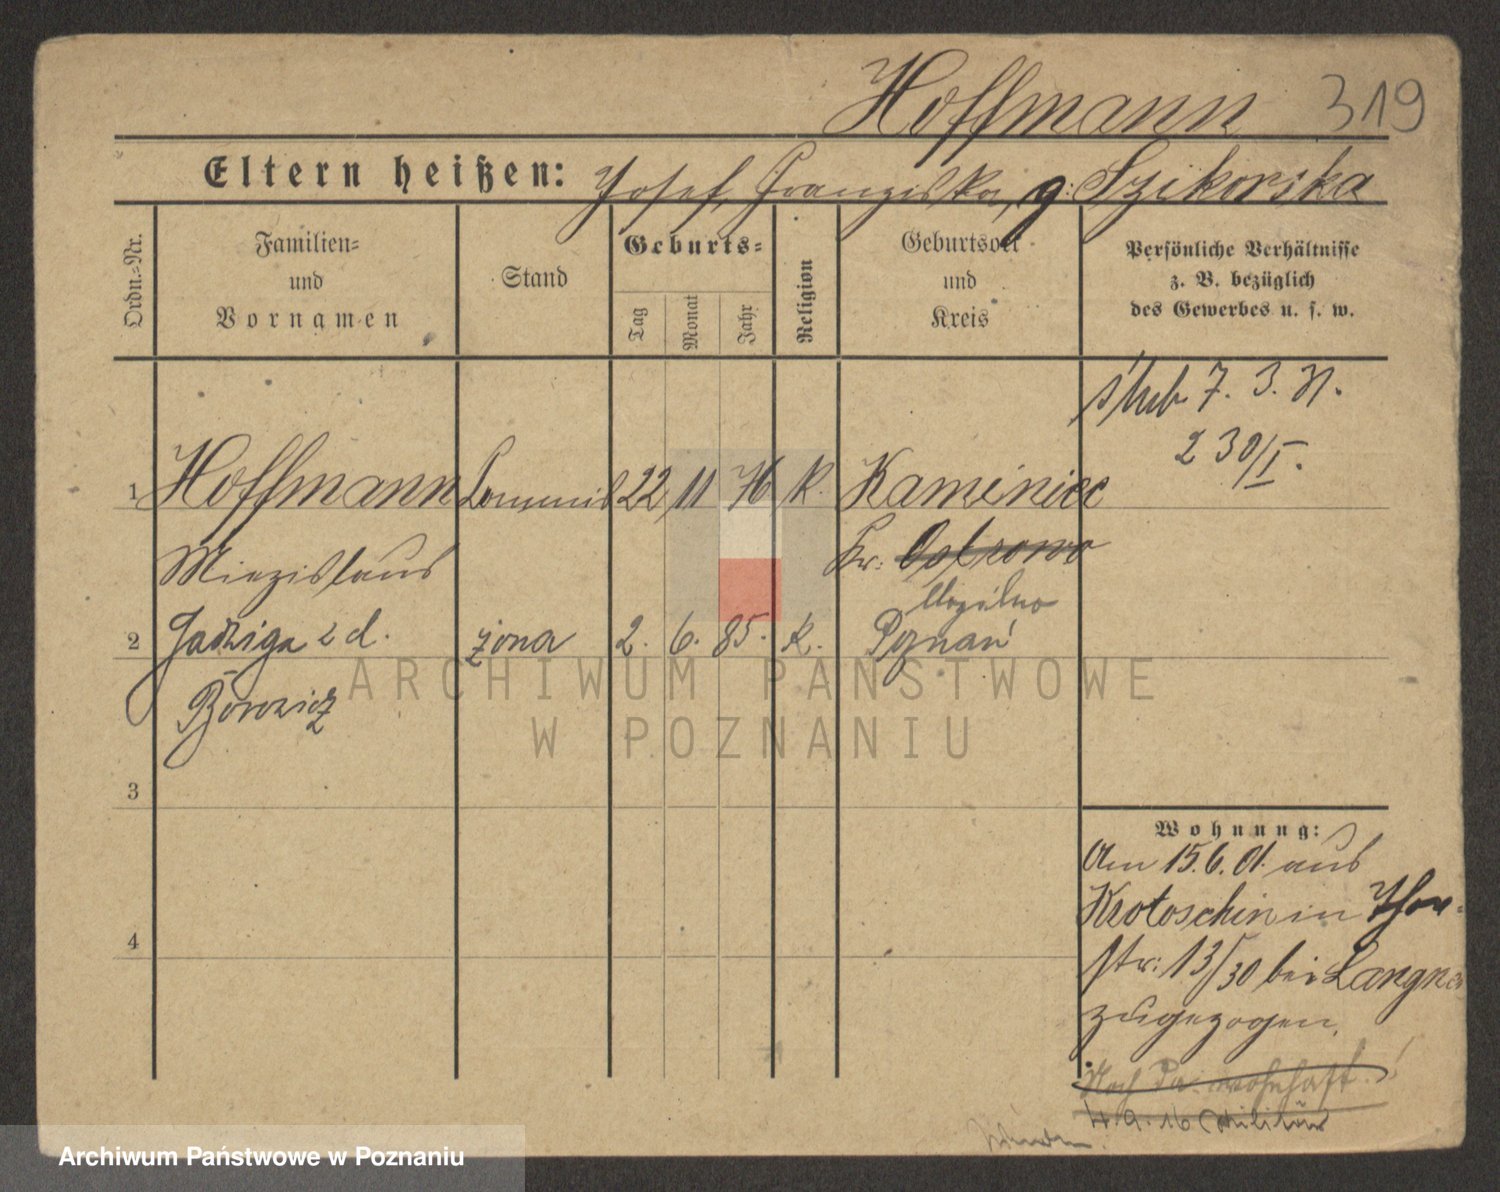 Hoffmann 319
Eltern heißen: Josef, Franziska, g: Szikorska
Ordn.-Nr.
Familien-
und
Vornamen
Stand
Geburts-
Tag
Monat
Jahr
Religion
Geburtsort
und
Kreis
Persönliche Verhältnisse
z. B. bezüglich
des Gewerbes u. s. w.
7. 3. 31.
230/I.
1 Hoffmann Commis 22 11 76 K. Kaminiec
Miezislaus Kr: Ostrowo
Mogilno
2 Jadwiga z d. żona 2. 6. 85. K. Poznań
Borowicz
ARCHIWUM PAŃSTWOWE
W POZNANIU
3
4
Wohnung:
Am 15.6.01. aus
Krotoschin in Thor-
str: 13/30 bei Langner
zugezogen.
Noch da wohnhaft!
4.9.16 Militär
Archiwum Państwowe w Poznaniu